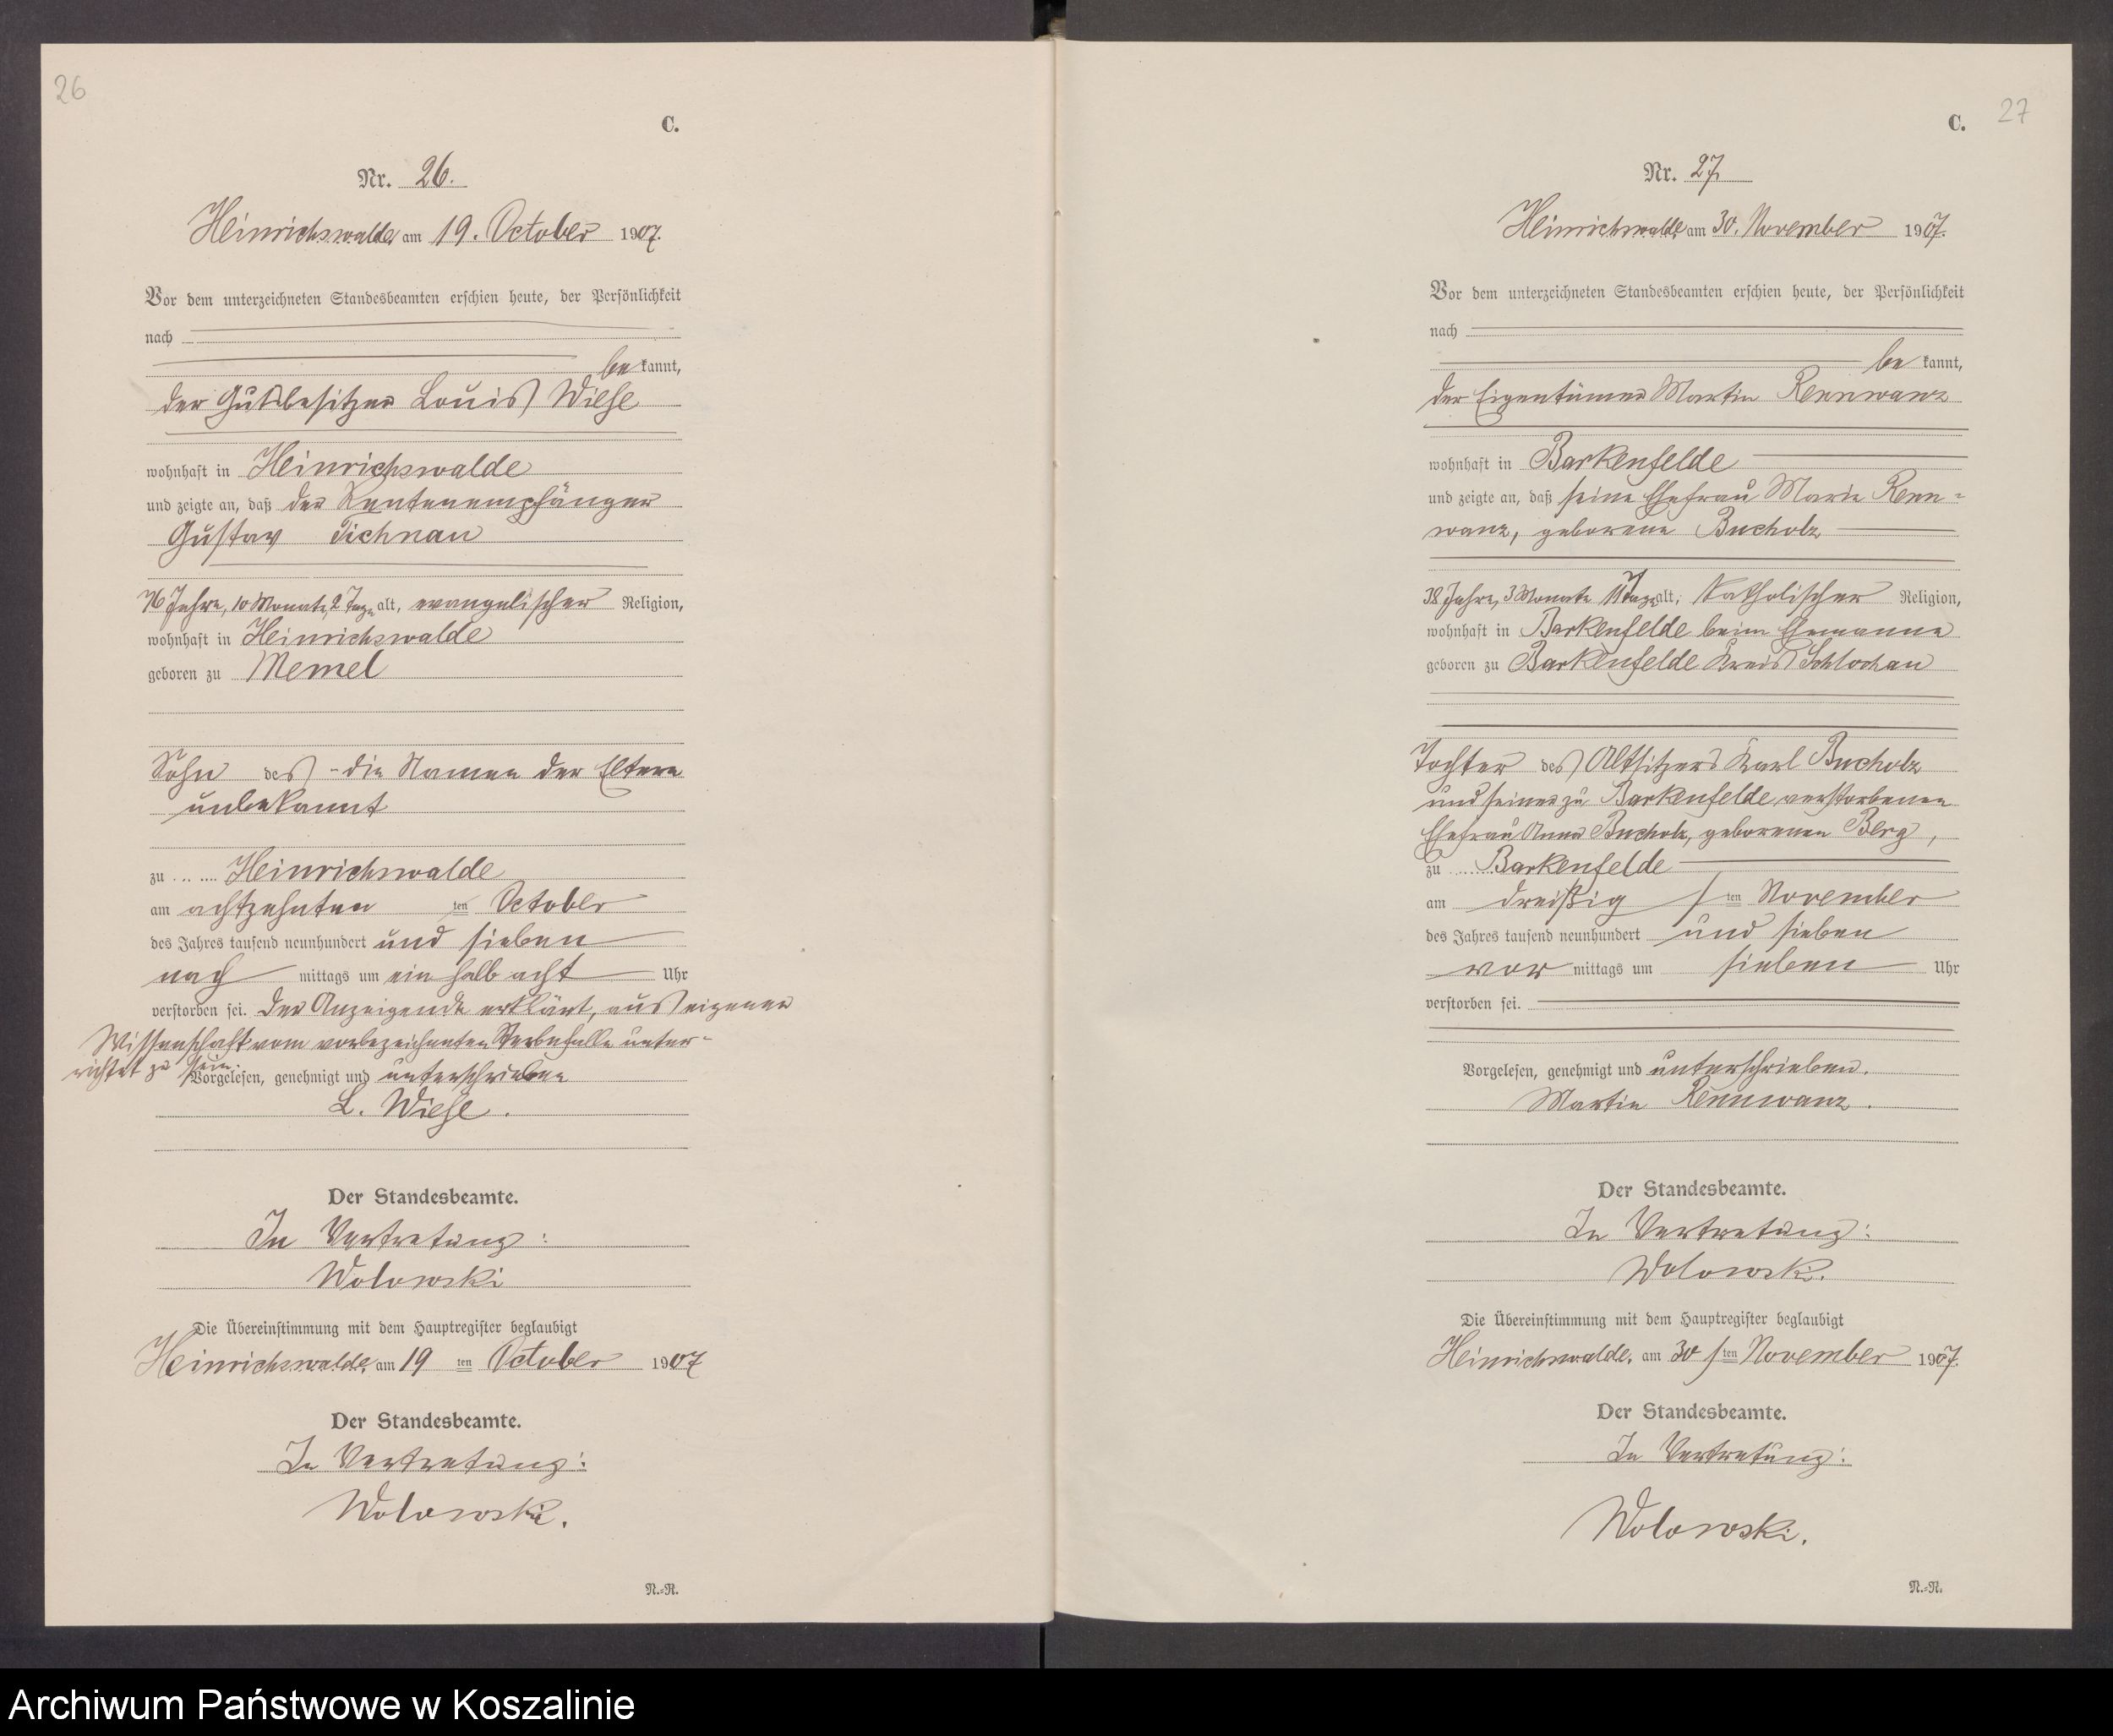 26
C.
Nr. 26.
Heinrichswalde, am 19. October 1907.
Vor dem unterzeichneten Standesbeamten erschien heute, der Persönlichkeit
nach
bekannt,
der Gutsbesitzer Louis Wiese
wohnhaft in Heinrichswalde
und zeigte an, daß der Rentenempfänger
Gustav Tichnau
76 Jahre, 10 Monate, 2 Tage alt, evangelischer Religion,
wohnhaft in Heinrichswalde
geboren zu Memel
Sohn des - die Namen der Eltern
unbekannt
zu Heinrichswalde
am achtzehnten ten October
des Jahres tausend neunhundert und sieben
nach mittags um ein halb acht Uhr
verstorben sei. Der Anzeigende erklärt, aus eigener
Wissenschaft vom vorbezeichneten Sterbefalle unter-
richtet zu sein.
Vorgelesen, genehmigt und unterschrieben
L. Wiese.
Der Standesbeamte.
In Vertretung:
Wolowski
Die Übereinstimmung mit dem Hauptregister beglaubigt
Heinrichswalde, am 19 ten October 1907
Der Standesbeamte.
In Vertretung:
Wolowski.
N.-R.
27
C.
Nr. 27
Heinrichswalde am 30. November 1907.
Vor dem unterzeichneten Standesbeamten erschien heute, der Persönlichkeit
nach
bekannt,
der Eigentümer Martin Rennwanz
wohnhaft in Barkenfelde
und zeigte an, daß seine Ehefrau Marie Renn-
wanz, geborene Bucholz
38 Jahre, 3 Monate 11 Tage alt, katholischer Religion,
wohnhaft in Barkenfelde beim Ehemanne
geboren zu Barkenfelde Kreis Schlochau
Tochter des Altsitzers Karl Bucholz
und seiner zu Barkenfelde verstorbenen
Ehefrau Anna Bucholz, geborenen Berg,
zu Barkenfelde
am dreißig sten November
des Jahres tausend neunhundert und sieben
vor mittags um sieben Uhr
verstorben sei.
Vorgelesen, genehmigt und unterschrieben.
Martin Rennwanz.
Der Standesbeamte.
In Vertretung:
Wolowski.
Die Übereinstimmung mit dem Hauptregister beglaubigt
Heinrichswalde, am 30 sten November 1907.
Der Standesbeamte.
In Vertretung:
Wolowski.
N.-R.
Archiwum Państwowe w Koszalinie